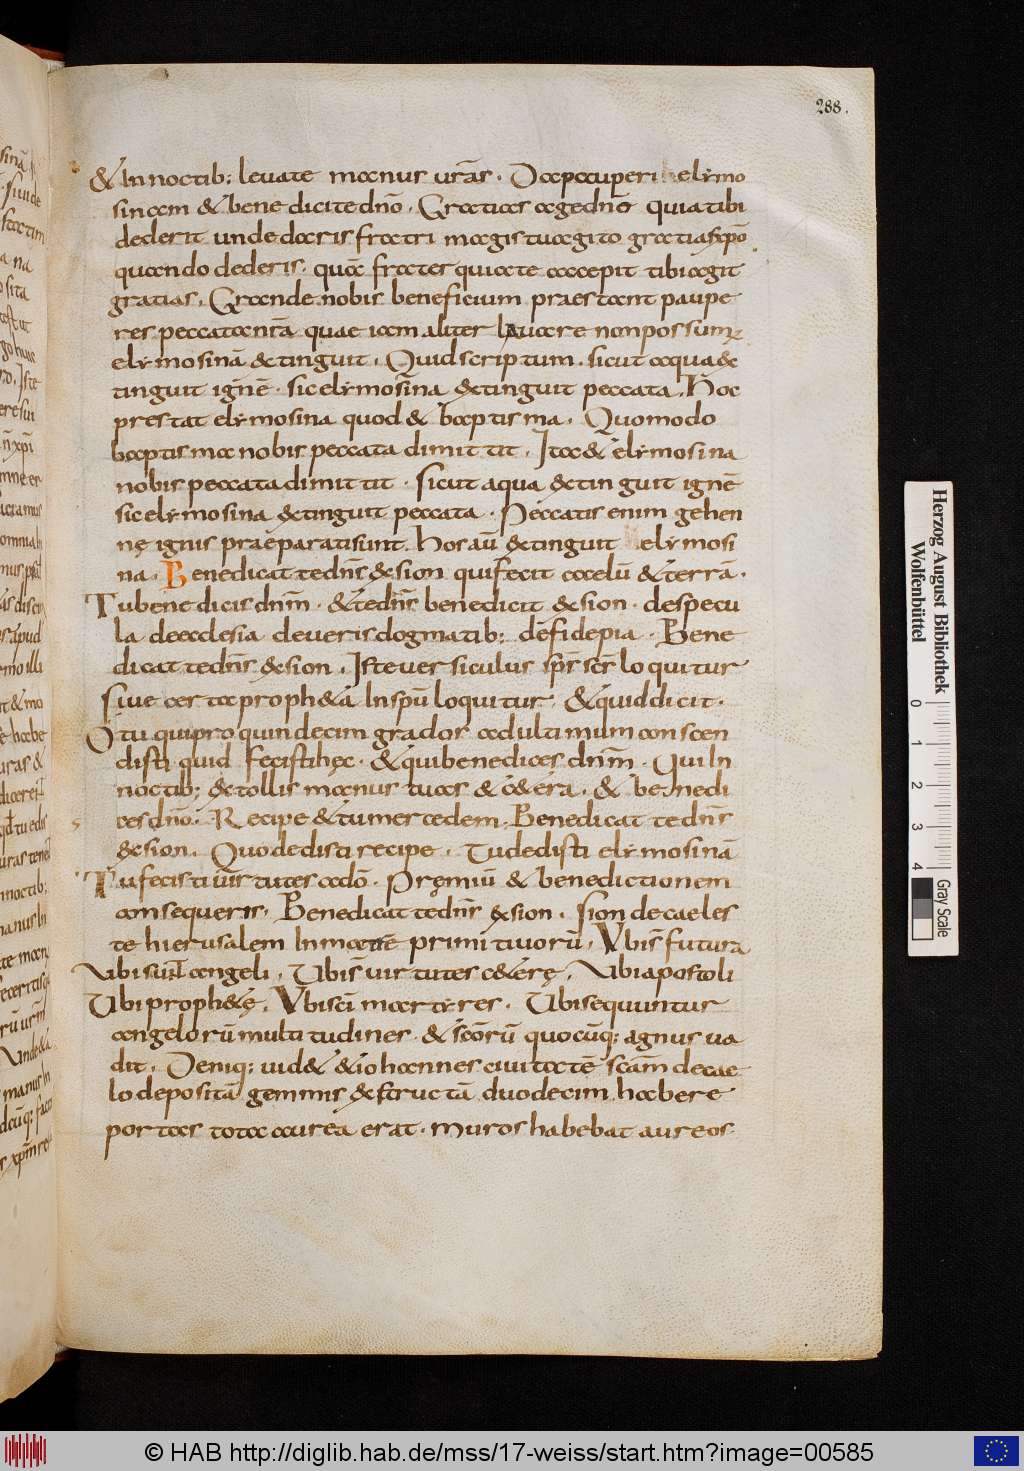 288.
& In noctib; leuate manus urās. Da pauperi elymo
sinam & benedicite dn̄o. Gratias age dn̄o quia tibi
dederit unde daris fratri magis tu agito gratias xp̄o
quando dederis. quā frater qui a te accepit tibi agit
gratias. Grande nobis beneficium praestant paupe
res peccata nr̄a quae iam aliter lauare non possum;
elymosinā &tinguit. Quid scriptum. sicut aqua &
tinguit ignē. sic elymosina &tinguit peccata. Hoc
prestat elymosina quod & baptisma. Quomodo
baptisma nobis peccata dimittit. Ita & elymosina
nobis peccata dimittit. sicut aqua &tinguit ignē
sic elymosina &tinguit peccata. Peccatis enim gehen
nę ignis praeparati sunt. Hos aū &tinguit elymosi
na. Benedicat te dn̄s & sion qui fecit caelū & terrā.
Tu benedicis dnm̄. & te dn̄s benedicit & sion. de specu
la de ecclesia de ueris dogmatib; de fide pia. Bene
dicat te dn̄s & sion. Iste uersiculus sp̄s sc̄s loquitur
siue certa proph&a In sp̄u loquitur & quid dicit.
O tu qui pro quindecim grador ad ultimum conscen
disti quid fecisti hęc. & qui benedices dnm̄. Qui In
noctib; &tollis manus tuas & c&era. & benedi
ces dn̄o. Recipe & tu mercedem. Benedicat te dn̄s
& sion. Quod dedisti recipe. Tu dedisti elymosinā
Tu fecisti uirtutes ad dō. Pręmiū & benedictionem
consequeris. Benedicat te dn̄s & sion. sion de caeles
te hierusalem In matrē primitiuorū. Vbi s̄ futura
Vbi sunt angeli. Vbi s̄ uirtutes c&erę. Vbi apostoli
Vbi proph&ę. Vbi sc̄i martyres. Vbi sequuntur
angelorū multitudines & sc̄orū quocūq; agnus ua
dit. Deniq; uid& & iohannes ciuitatē scām de cae
lo depositā gemmis &structā duodecim habere
portas tota aurea erat. muros habebat aureos
Herzog August Bibliothek
Wolfenbüttel
0 1 2 3 4
Gray Scale
© HAB http://diglib.hab.de/mss/17-weiss/start.htm?image=00585